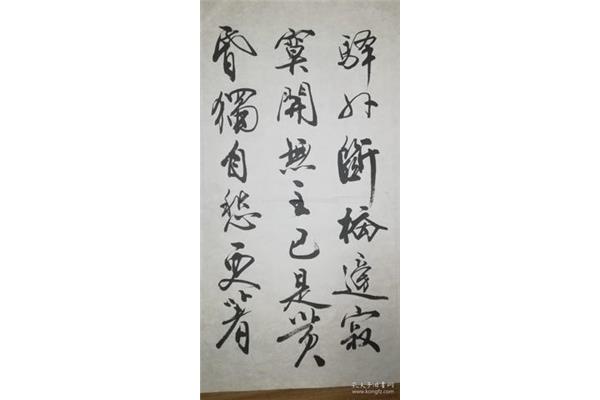 驛外斷橋邊寂
寞開無主已是黄
昏獨自愁更着
孔夫子旧书网
www.kongfz.com